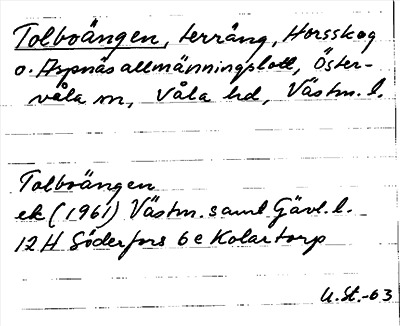 Tolboängen, terräng, Horsskog
o. Aspnäs allmänningslott, Öster-
våla sn, Våla hd, Västm. l.
Tolboängen
ek (1961) Västm. samt Gävl. l.
12 H Söderfors 6 e Kolartorp
U.St.-63